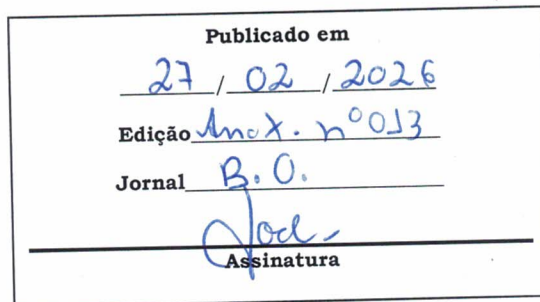 Publicado em
27 / 02 / 2026
Edição Ano X. nº 013
Jornal B.O.
Assinatura